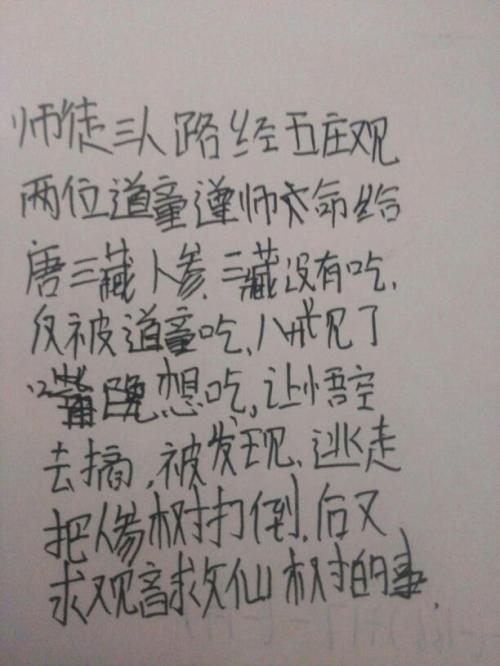 师徒三人路经五庄观
两位道童遵师夫命给
唐三藏人参,三藏没有吃,
反被道童吃,八戒见了
嘴馋,想吃,让悟空
去摘,被发现,逃走
把人参树打倒,后又
求观音救仙树的事.